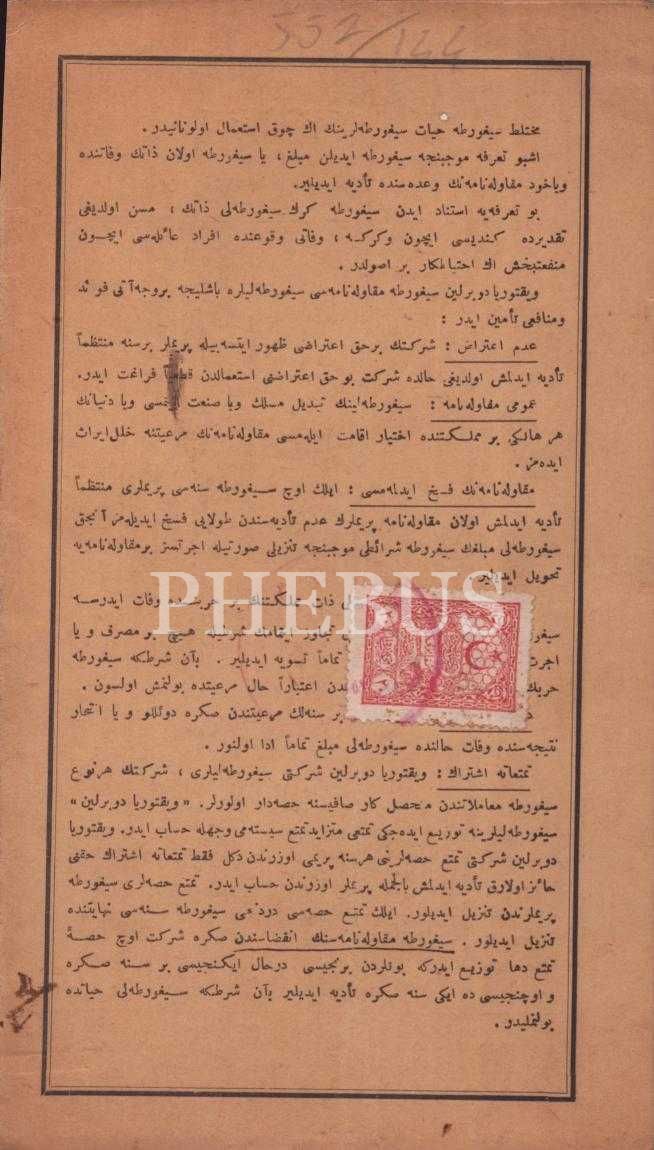 552/144
مختلط سیغورطه حیات سیغورطه‌لرینك اك چوق استعمال اولونانیدر.
اشبو تعرفه موجبنجه سیغورطه ایدیلن مبلغ، یا سیغورطه اولان ذاتك وفاتنده
ویاخود مقاوله‌نامه‌نك وعده‌سنده تأدیه ایدیلیر.
بو تعرفه‌یه استناد ایدن سیغورطه كرك سیغورطه‌لی ذاتك، مسن اولدیغی
تقدیرده كندیسی ایچون وكركسه، وفاتی وقوعنده افراد عائله‌سی ایچون
منفعتبخش اك احتیاطكار بر اصولدر.
ویقتوریا دوبرلین سیغورطه مقاوله‌نامه‌سی سیغورطه‌لیلره باشلیجه بروجه آتی فوائد
ومنافعی تأمین ایدر:
عدم اعتراض: شركتك برحق اعتراضی ظهور ایتسه بیله پریملر برسنه منتظماً
تأدیه ایدلمش اولدیغی حالده شركت بو حق اعتراضنی استعمالدن قطعیاً فراغت ایدر.
عمومی مقاوله‌نامه: سیغورطه‌لینك تبدیل مسلك ویا صنعت ایتمسی ویا دنیانك
هر هانكی بر مملكتنده اختیار اقامت ایله‌مسی مقاوله‌نامه‌نك مرعیتنه خلل ایراث
ایده‌مز.
مقاوله‌نامه‌نك فسخ ایدلمه‌مسی: ایلك اوچ سیغورطه سنه‌سی پریملری منتظماً
تأدیه ایدلمش اولان مقاوله‌نامه پریملرك عدم تأدیه‌سندن طولایی فسخ ایدیله‌مز آنجق
سیغورطه‌لی مبلغك سیغورطه شرائطی موجبنجه تنزیلی صورتیله اجرتسز بر مقاوله‌نامه‌یه
تحویل ایدیلیر.
PHEBUS
لی ذات مملكتنك بر حربنده وفات ایدرسه
سیغو تجاوز ایتمامك شرطیله هیچ بر مصرف و یا
اجرت تماماً تسویه ایدیلیر. بآن شرطكه سیغورطه
حربك ندن اعتباراً حال مرعیتده بولنمش اولسون.
بر سنه‌لك مرعیتندن صكره دوئللو و یا انتحار
نتیجه‌سنده وفات حالنده سیغورطه‌لی مبلغ تماماً ادا اولنور.
تمتعاته اشتراك: ویقتوریا دوبرلین شركتی سیغورطه‌لیلری، شركتك هرنوع
سیغورطه معاملاتندن متحصل كار صافیسنه حصه‌دار اولورلر. «ویقتوریا دوبرلین»
سیغورطه‌لیلرینه توزیع ایده‌جكی تمتعی متزاید تمتع سیستمی وجهله حساب ایدر. ویقتوریا
دوبرلین شركتی تمتع حصه‌لرنی هرسنه پریمی اوزرندن دكل فقط تمتعاته اشتراك حقنی
حائز اولارق تأدیه ایدلمش بالجمله پریملر اوزرندن حساب ایدر. تمتع حصه‌لری سیغورطه
پریملرندن تنزیل ایدیلور. ایلك تمتع حصه‌سی دردنجی سیغورطه سنه‌سی نهایتنده
تنزیل ایدیلور. سیغورطه مقاوله‌نامه‌سنك انقضاسندن صكره شركت اوچ حصهٔ
تمتع دها توزیع ایدركه بونلردن برنجیسی درحال ایكنجیسی بر سنه صكره
و اوچنجیسی ده ایكی سنه صكره تأدیه ایدیلیر بآن شرطكه سیغورطه‌لی حیاتده
بولنملیدر.